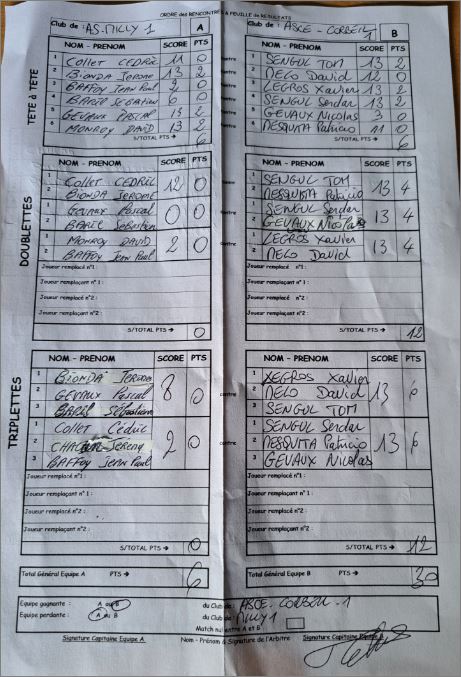 ORDRE des RENCONTRES & FEUILLE de RESULTATS
Club de : AS.MILLY 1 A
Club de : ASCE-CORBEIL 1 B
TÊTE à TÊTE
NOM - PRENOM SCORE PTS
1 COLLET CEDRIC 11 0
2 BIONDA JEROME 13 2
3 BAFFOY JEAN PAUL 0
4 0
5 GEVAUX PASCAL 13 2
6 MONROY DAVID 13 2
S/TOTAL PTS → 6
contre
NOM - PRENOM SCORE PTS
SENGUL TOM 13 2
MELO David 12 0
LEGROS Xavier 13 2
SENGUL Serdar 13 2
GEVAUX Nicolas 3 0
MESQUITA Patricio 11 0
S/TOTAL PTS → 6
DOUBLETTES
NOM - PRENOM SCORE PTS
1 COLLET CEDRIC 12 0
2 BIONDA JEROME
1 GEVAUX Pascal 0 0
2 Sébastien
1 MONROY DAVID 2 0
2 BAFFOY Jean Paul
Joueur remplacé n°1 :
Joueur remplaçant n°1 :
Joueur remplacé n°2 :
Joueur remplaçant n°2 :
S/TOTAL PTS → 0
contre
NOM - PRENOM SCORE PTS
1 SENGUL TOM 13 4
2 MESQUITA Patricio
1 SENGUL Serdar 13 4
2 GEVAUX Nicolas
1 LEGROS Xavier 13 4
2 MELO David
Joueur remplacé n°1 :
Joueur remplaçant n°1 :
Joueur remplacé n°2 :
Joueur remplaçant n°2 :
S/TOTAL PTS → 12
TRIPLETTES
NOM - PRENOM SCORE PTS
1 BIONDA Jerome 8 0
2 GEVAUX Pascal
3 Sébastien
1 COLLET Cédric 2 0
2 Jérémy
3 BAFFOY JEAN Paul
Joueur remplacé n°1 :
Joueur remplaçant n°1 :
Joueur remplacé n°2 :
Joueur remplaçant n°2 :
S/TOTAL PTS → 0
contre
NOM - PRENOM SCORE PTS
1 LEGROS Xavier 13 6
2 MELO David
3 SENGUL TOM
1 SENGUL Serdar 13 6
2 MESQUITA Patricio
3 GEVAUX Nicolas
Joueur remplacé n°1 :
Joueur remplaçant n°1 :
Joueur remplacé n°2 :
Joueur remplaçant n°2 :
S/TOTAL PTS → 12
Total Général Equipe A PTS → 6
Total Général Equipe B PTS → 30
Equipe gagnante : A ou B du Club de : ASCE-CORBEIL-1
Equipe perdante : A ou B du Club de : MILLY 1
Match nul entre A et B
Signature Capitaine Equipe A Nom - Prénom & Signature de l'Arbitre Signature Capitaine Equipe B